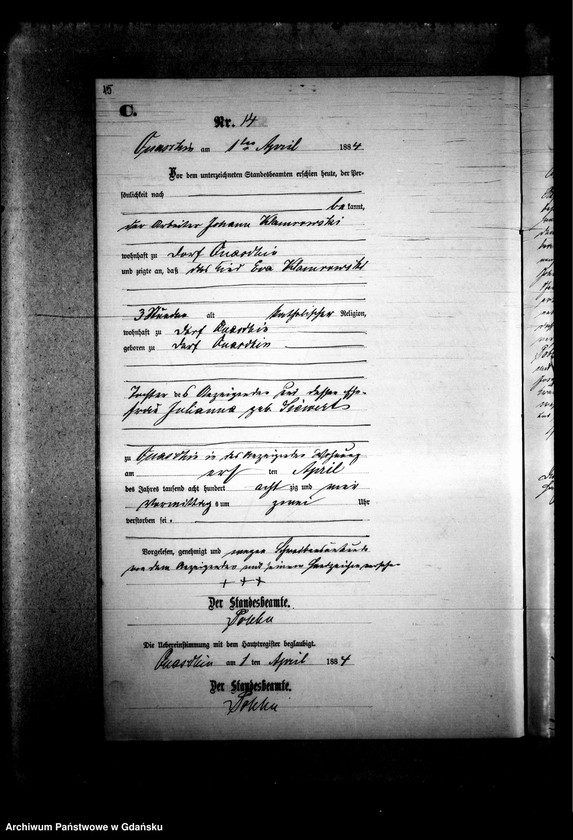 15
C.
Nr. 14
Quaschin am 1ten April 1884.
Vor dem unterzeichneten Standesbeamten erschien heute, der Per-
sönlichkeit nach
bekannt,
der Arbeiter Johann Klamrowski
wohnhaft zu Dorf Quaschin
und zeigte an, daß das Kind Eva Klamrowski
3 Stunden alt katholischer Religion,
wohnhaft zu Dorf Quaschin
geboren zu Dorf Quaschin
Tochter des Anzeigenden und dessen Ehe-
frau Julianna geb. Siewert
zu Quaschin in des Anzeigenden Wohnung
am ersten April
des Jahres tausend acht hundert achtzig und vier
Vormittags um zwei Uhr
verstorben sei.
Vorgelesen, genehmigt und wegen
von dem Anzeigenden mit seinem Handzeichen versehen
+ + +
Der Standesbeamte.
Die Uebereinstimmung mit dem Hauptregister beglaubigt.
Quaschin am 1 ten April 1884
Der Standesbeamte.
Archiwum Państwowe w Gdańsku